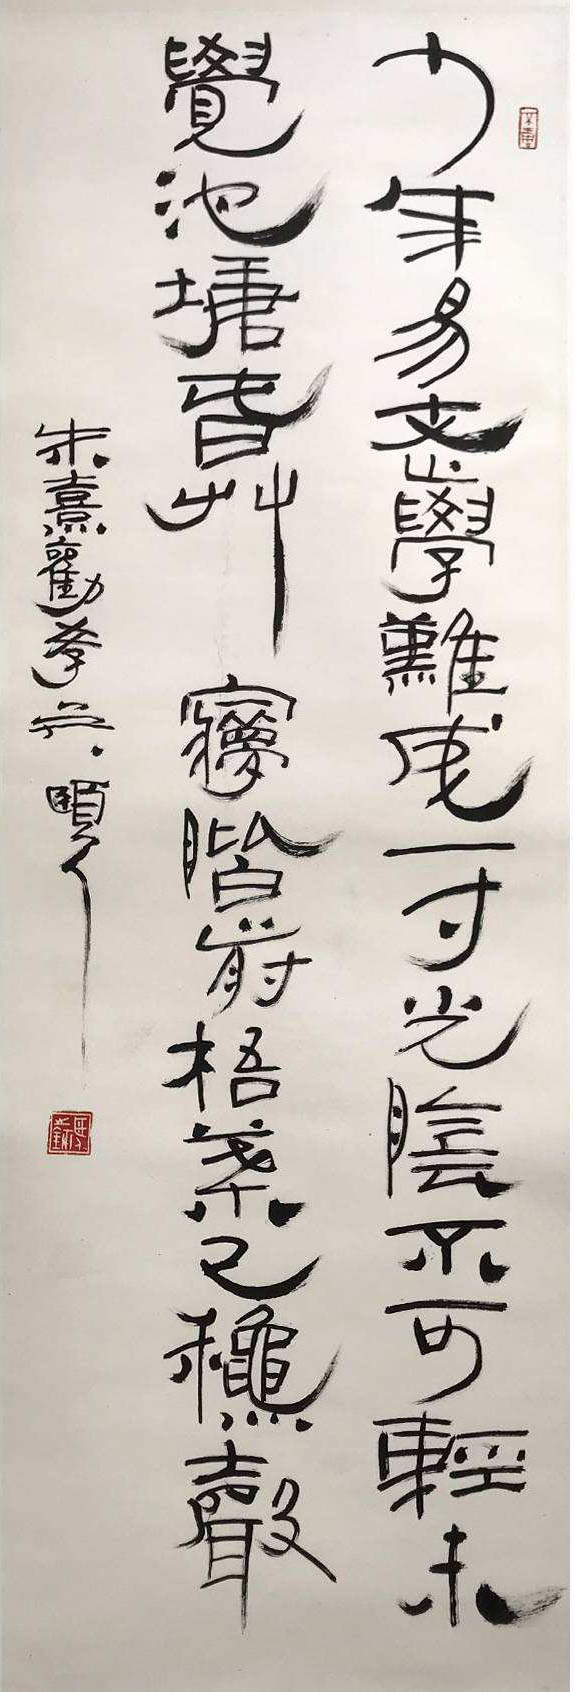 少年易老學難成一寸光陰不可輕未
覺池塘春艸夢階前梧葉已龝聲
朱熹勸學吳頤人